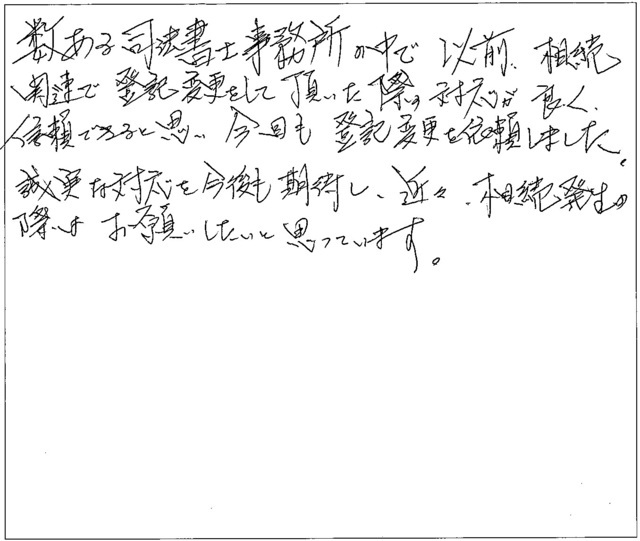 数ある司法書士事務所の中で 以前、相続
関連で登記変更をして頂いた際の対応が良く、
信頼できると思い 今回も 登記変更を依頼しました。
誠実な対応を今後も期待し、近々、相続発生の
際は お願いしたいと思っています。